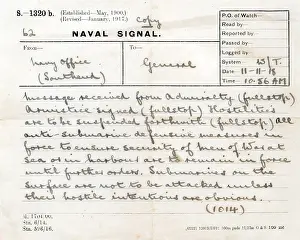 S.—1320 b. (Established—May, 1900.)
(Revised—January, 1917.)
Copy
P.O. of Watch—
Read by—
62 NAVAL SIGNAL.
Reported by—
Passed by—
Logged by—
From— To—
System W/T.
Navy Office General
Date 11-11-18
(Southend)
Time 10.56 AM
Message received from Admiralty (fullstop)
Armistice signed (fullstop) Hostilities
are to be suspended forthwith (fullstop) all
anti-submarine defensive measures in
force to ensure security of men of War at
sea or in harbour are to remain in force
until further orders. Submarines on the
surface are not to be attacked unless
their hostile intentions are obvious.
(1014)
Sta. 6/14.
Sta. 3/6/16.